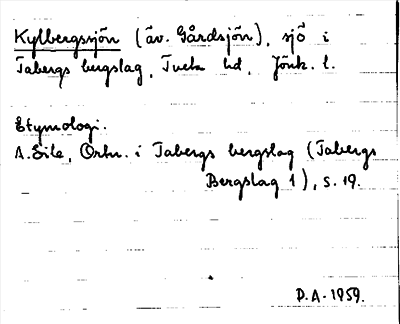 Kylbergssjön (äv. Gårdsjön), sjö i
Tabergs bergslag, Tveta hd, Jönk. l.
Etymologi.
A. Eile, Ortn. i Tabergs bergslag (Tabergs
Bergslag 1), s. 19.
P.A. 1959.